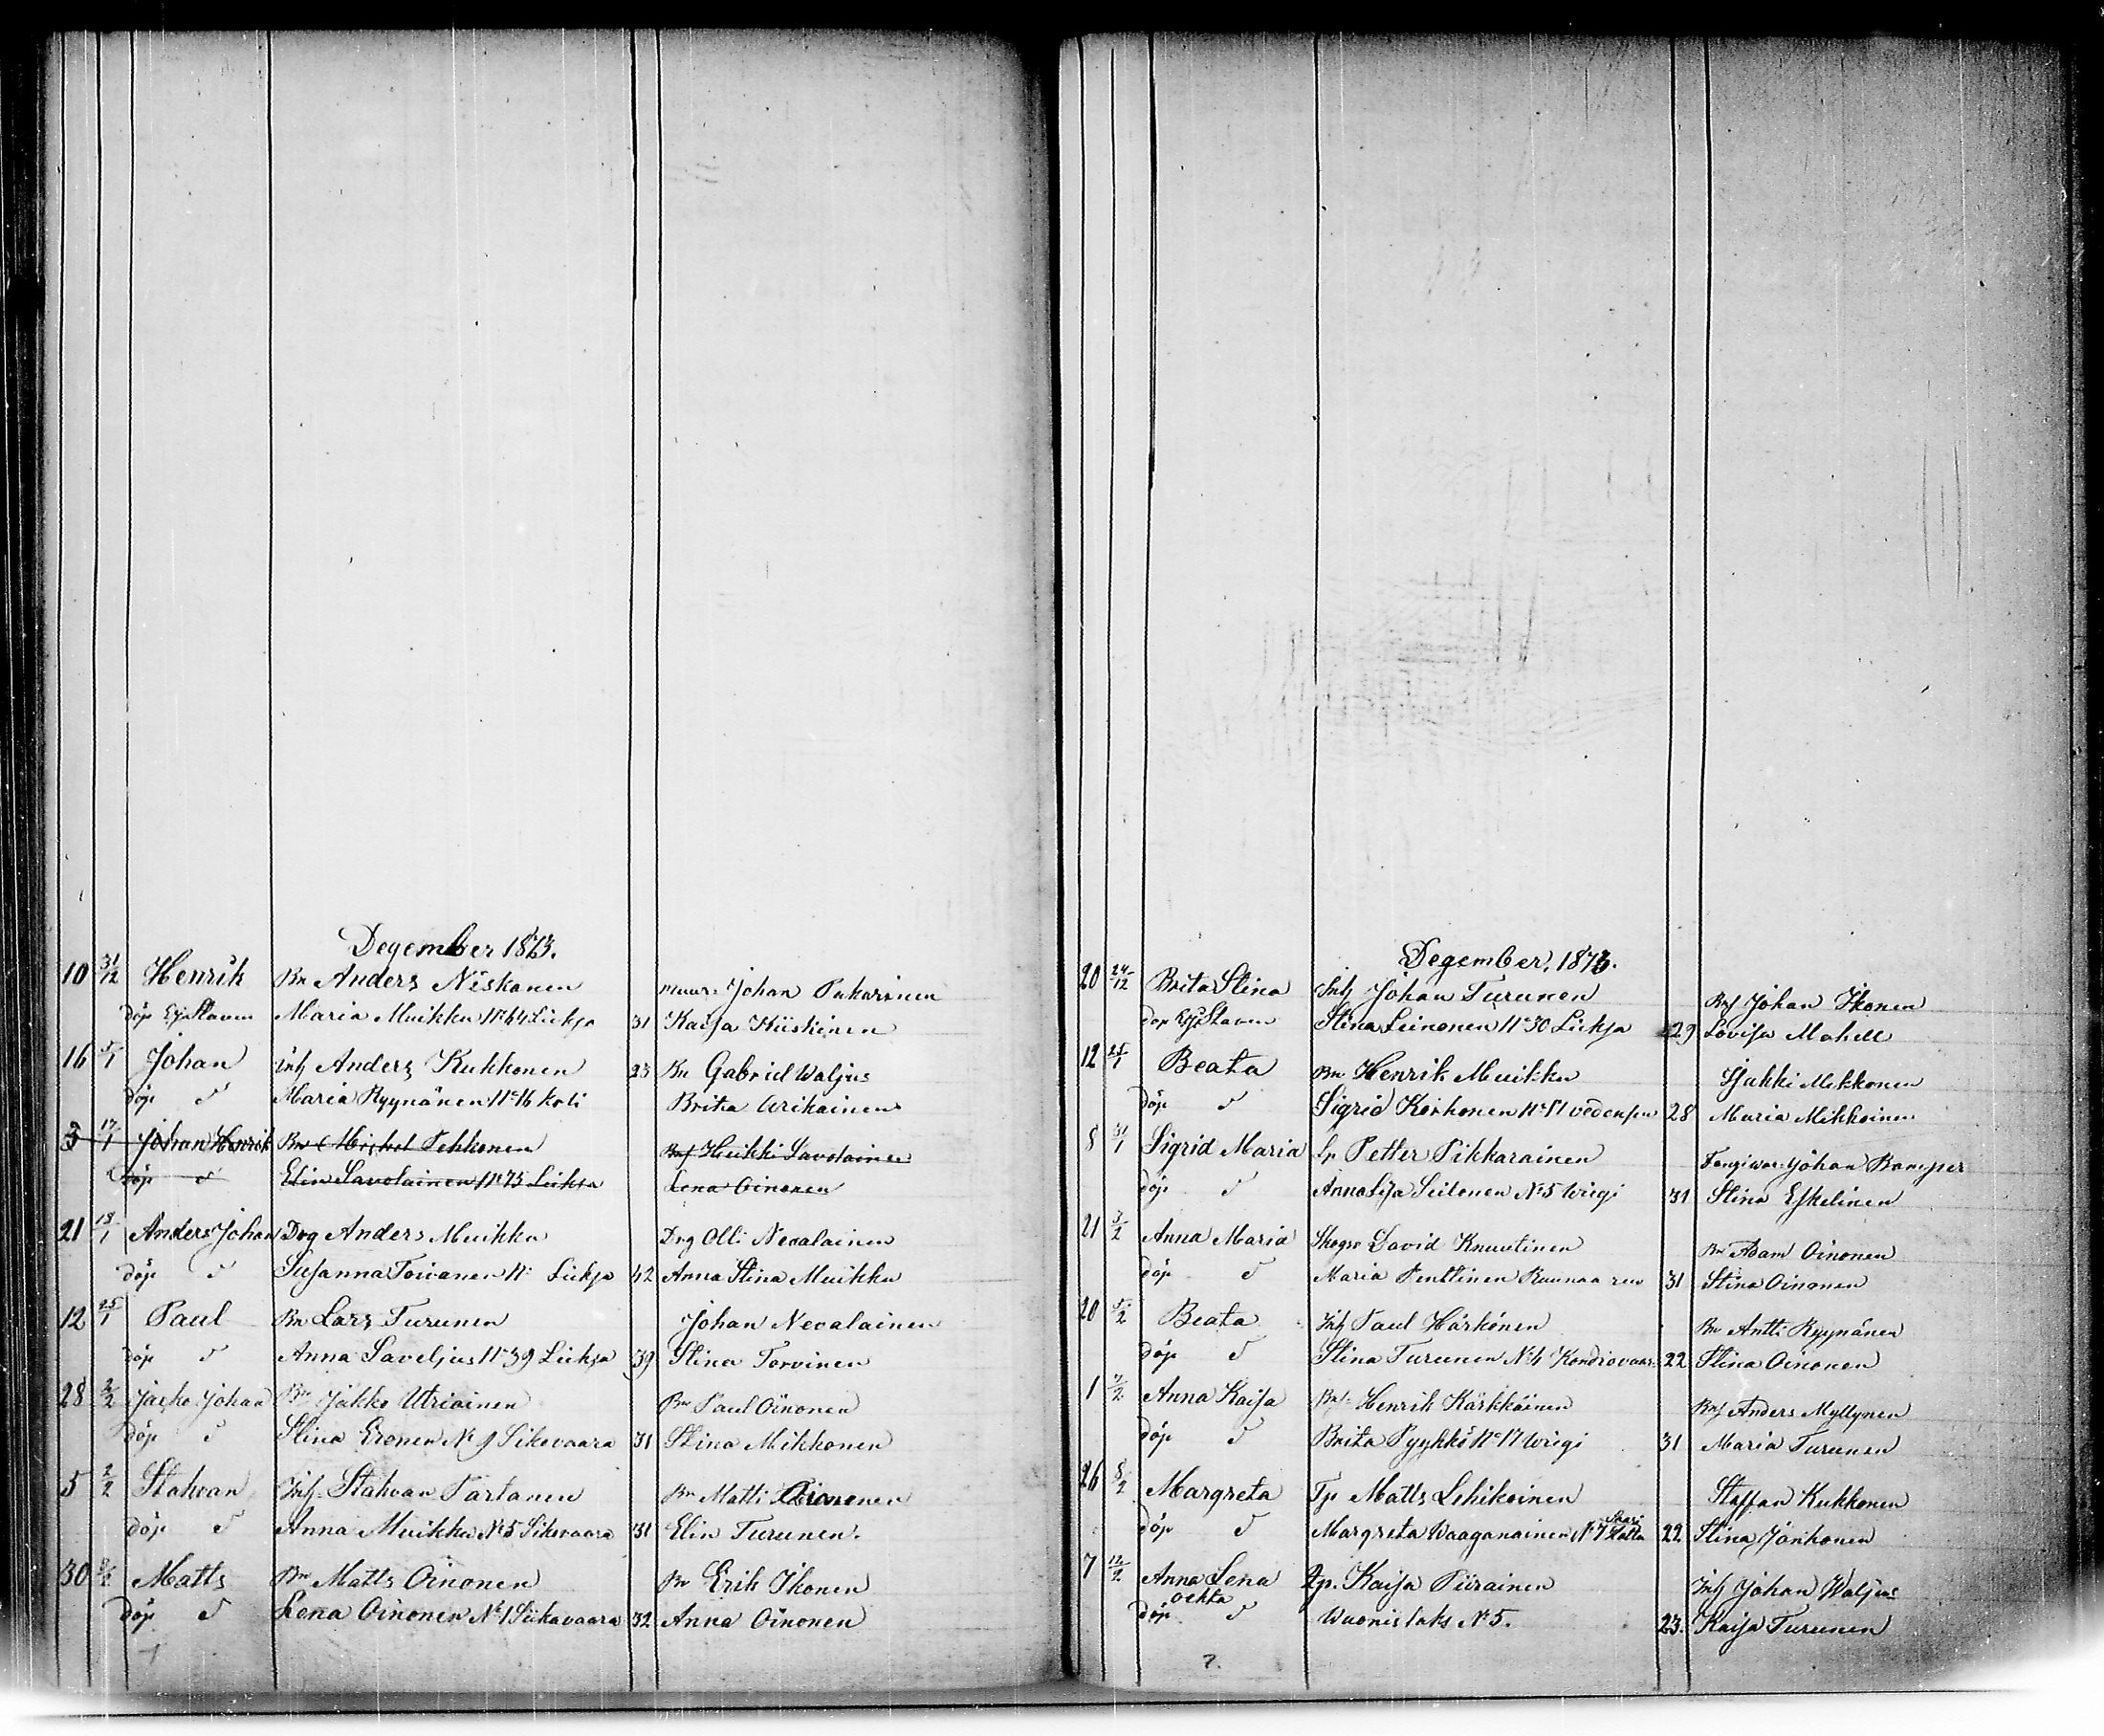 Degember 1873.
10 31/12 Henrik Bn Anders Niskanen Johan Pakarinen
döp Ejt Staven Maria Muikku No 44 Lieksa 31 Kaisa Kiiskinen
16 5/1 Johan Inh Anders Kukkonen 23 Bn Gabriel Waljus
döp d Maria Ryynänen No 16 Koli Brita Urikainen
3 17/1 Johan Henrik Bn Michel Pehkonen Bnf Heikki Savolainen
döp d Elin Savolainen No 73 Lieksa Lena Oinonen
21 18/1 Anders Johan Drg Anders Muikku Drg Olli Nevalainen
döp d Susanna Toivanen No Lieksa 42 Anna Stina Muikku
12 25/1 Paul Bn Lars Turunen Johan Nevalainen
döp d Anna Saveljus No 39 Lieksa 39 Stina Torvinen
28 2/2 Jacko Johan Bn Jakko Utriainen Bn Paul Oinonen
döp d Stina Eronen No 9 Sikovaara 31 Stina Mikkonen
5 2/2 Stahvan Inh Stahvan Tartanen Bn Matti Oinonen
döp d Anna Muikku No 5 Sikovaara 31 Elin Turunen.
30 Matts Bn Matts Oinonen Bn Erik Ikonen
döp d Lena Oinonen No 1 Siikavaara 32 Anna Oinonen
Degember, 1873.
20 24/12 Brita Stina Inh Johan Turunen Bnf Johan Ikonen
döp Ejt Staven Stina Leinonen No 30 Lieksa 29 Lovisa Mahell
12 25/1 Beata Bn Henrik Muikku Mikkonen
döp d Sigrid Korhonen No 51 28 Maria Mikkoinen
8 31/1 Sigrid Maria Petter Pikkarainen Johan
döp d Anna Lisa Siitonen No 5 Wiegi 31 Stina Eskelinen
21 3/2 Anna Maria Skogsv David Knuutinen Bn Adam Oinonen
döp d Maria Penttinen 31 Stina Oinonen
20 5/2 Beata Inh Paul Härkönen Bn Antti Ryynänen
döp d Stina Turunen No 4 Kondiovaar 22 Stina Oinonen
1 7/2 Anna Kaisa Bnf Henrik Kärkkäinen Bnf Anders Myllynen
döp d Brita Pyykkö No 17 Wiegi 31 Maria Turunen
26 8/2 Margreta Tp Matts Lehikoinen Staffan Kukkonen
döp d Margreta Waaganainen No 7 22 Stina Jänhonen
7 12/2 Anna Lena Kaisa Piirainen Inh Johan Waljus
oekta
döp d Wuonislaks No 5. 23. Kaisa Turunen
7.